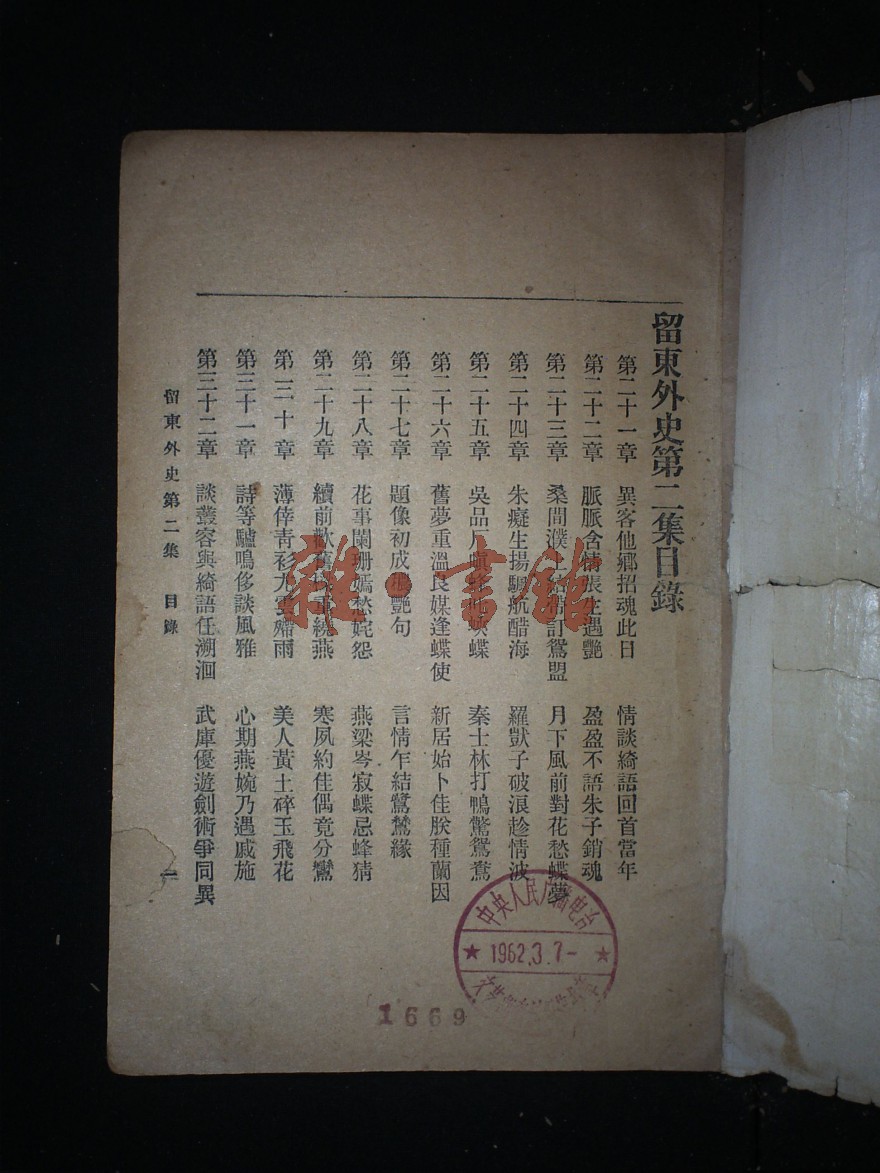 留東外史第二集目錄
第二十一章 異客他鄉招魂此日 情談綺語回首當年
第二十二章 脈脈含情張生遇艷 盈盈不語朱子銷魂
第二十三章 桑間濮上結帶訂鴛盟 月下風前對花愁蝶夢
第二十四章 朱癡生揚颿航醋海 羅獃子破浪趁情波
第二十五章 吳品厂嗔蜂叱蛺蝶 秦士林打鴨驚鴛鴦
第二十六章 舊夢重溫良媒逢蝶使 新居始卜佳朕種蘭因
第二十七章 題像初成艷句 言情乍結鴛鴦緣
第二十八章 花事闌珊嫣愁姹怨 燕梁岑寂蝶忌蜂猜
第二十九章 續前歡舊燕 寒夙約佳偶竟分鸞
第三十章 薄倖青衫尤雲殢雨 美人黃土碎玉飛花
第三十一章 詩等驢鳴侈談風雅 心期燕婉乃遇戚施
第三十二章 談叢容與綺語任溯洄 武庫優遊劍術爭同異
留東外史第二集 目錄 一
雜·書館
中央人民广播电台
1962.3.7-
1669